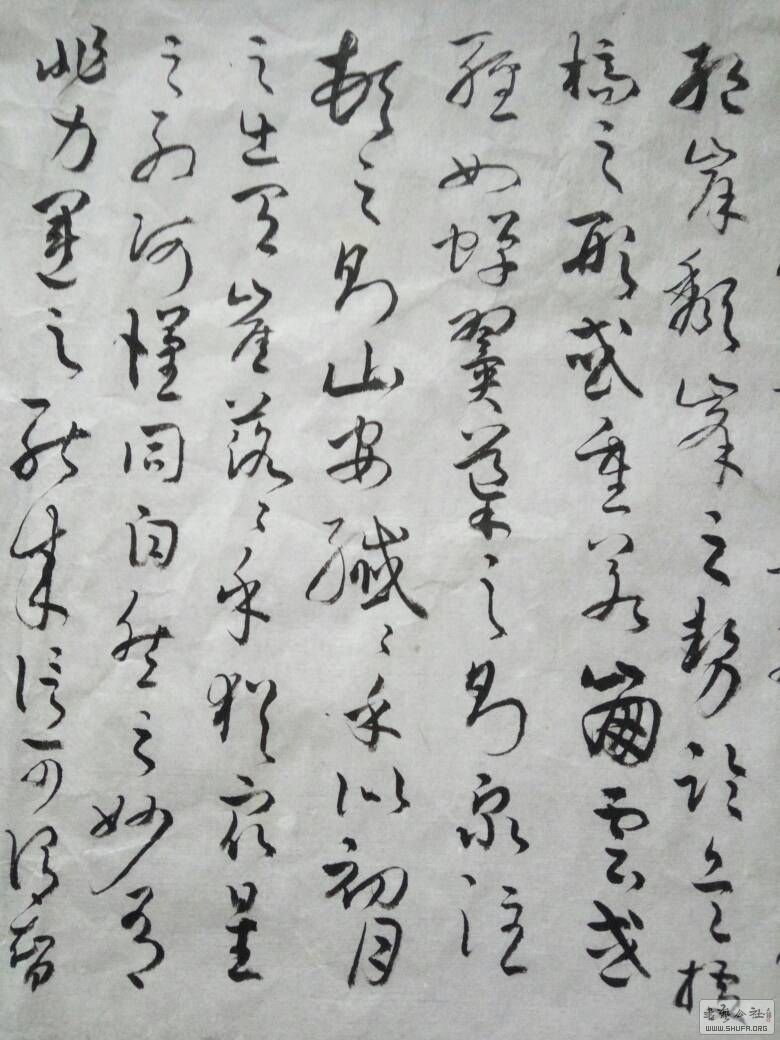 絕岸頹峯之勢臨危據
槁之形或重若崩雲或
輕如蟬翼導之則泉注
頓之則山安纖々乎似初月
之出天崖落々乎猶衆星
之列河漢同自然之妙有
非力運之能成信可謂智
WWW.SHUFA.ORG